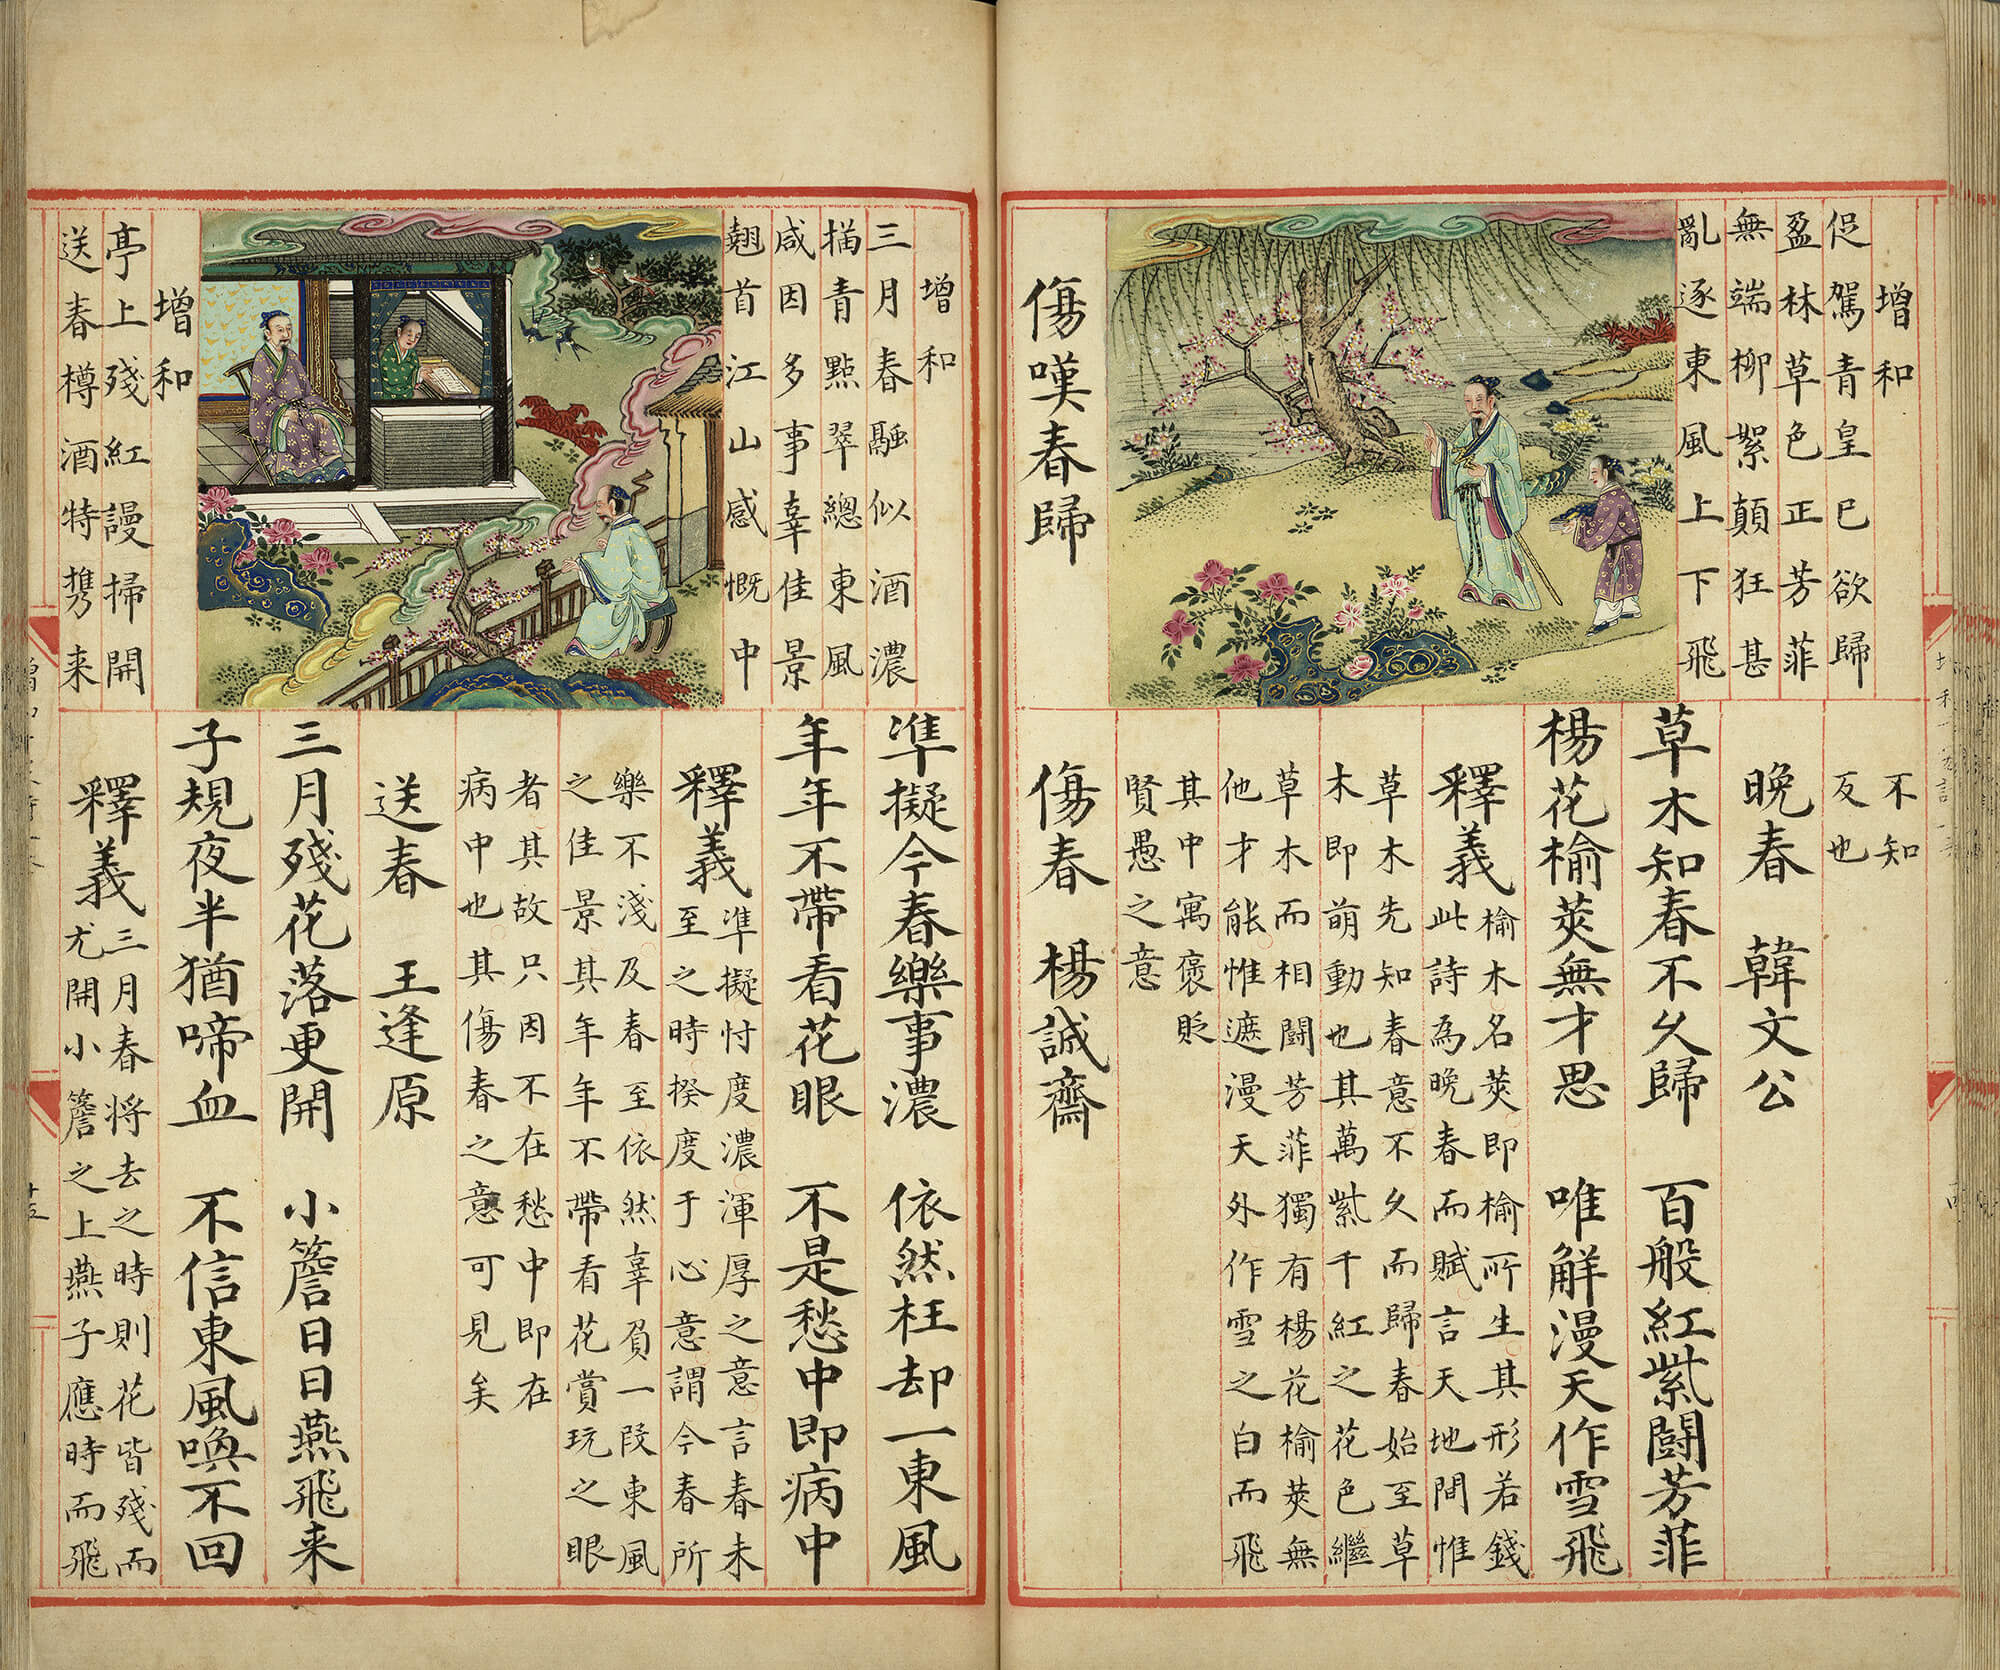 增和
促駕青皇已欲歸
盈林草色正芳菲
無端柳絮顛狂甚
亂逐東風上下飛
傷嘆春歸
不知
反也
晚春 韓文公
草木知春不久歸 百般紅紫鬪芳菲
楊花榆莢無才思 唯解漫天作雪飛
釋義 榆木名莢即榆所生其形若錢
此詩為晚春而賦言天地間惟
草木先知春意不久而歸春始至草
木即萌動也其萬紫千紅之花色繼
草木而相鬪芳菲獨有楊花榆莢無
他才能惟遮漫天外作雪之白而飛
其中寓褒貶
賢愚之意
傷春 楊誠齋
增和
三月春融似酒濃
描青點翠總東風
咸因多事辜佳景
翹首江山感慨中
增和
亭上殘紅謾掃開
送春樽酒特携来
凖擬今春樂事濃 依然枉却一東風
年年不帶看花眼 不是愁中即病中
釋義 凖擬忖度濃渾厚之意言春未
至之時揆度于心意謂今春所
樂不淺及春至依然辜負一段東風
之佳景其年年不帶看花賞玩之眼
者其故只因不在愁中即在
病中也其傷春之意可見矣
送春 王逢原
三月殘花落更開 小簷日日燕飛来
子規夜半猶啼血 不信東風喚不回
釋義 三月春将去之時則花皆殘而
尤開小簷之上燕子應時而飛